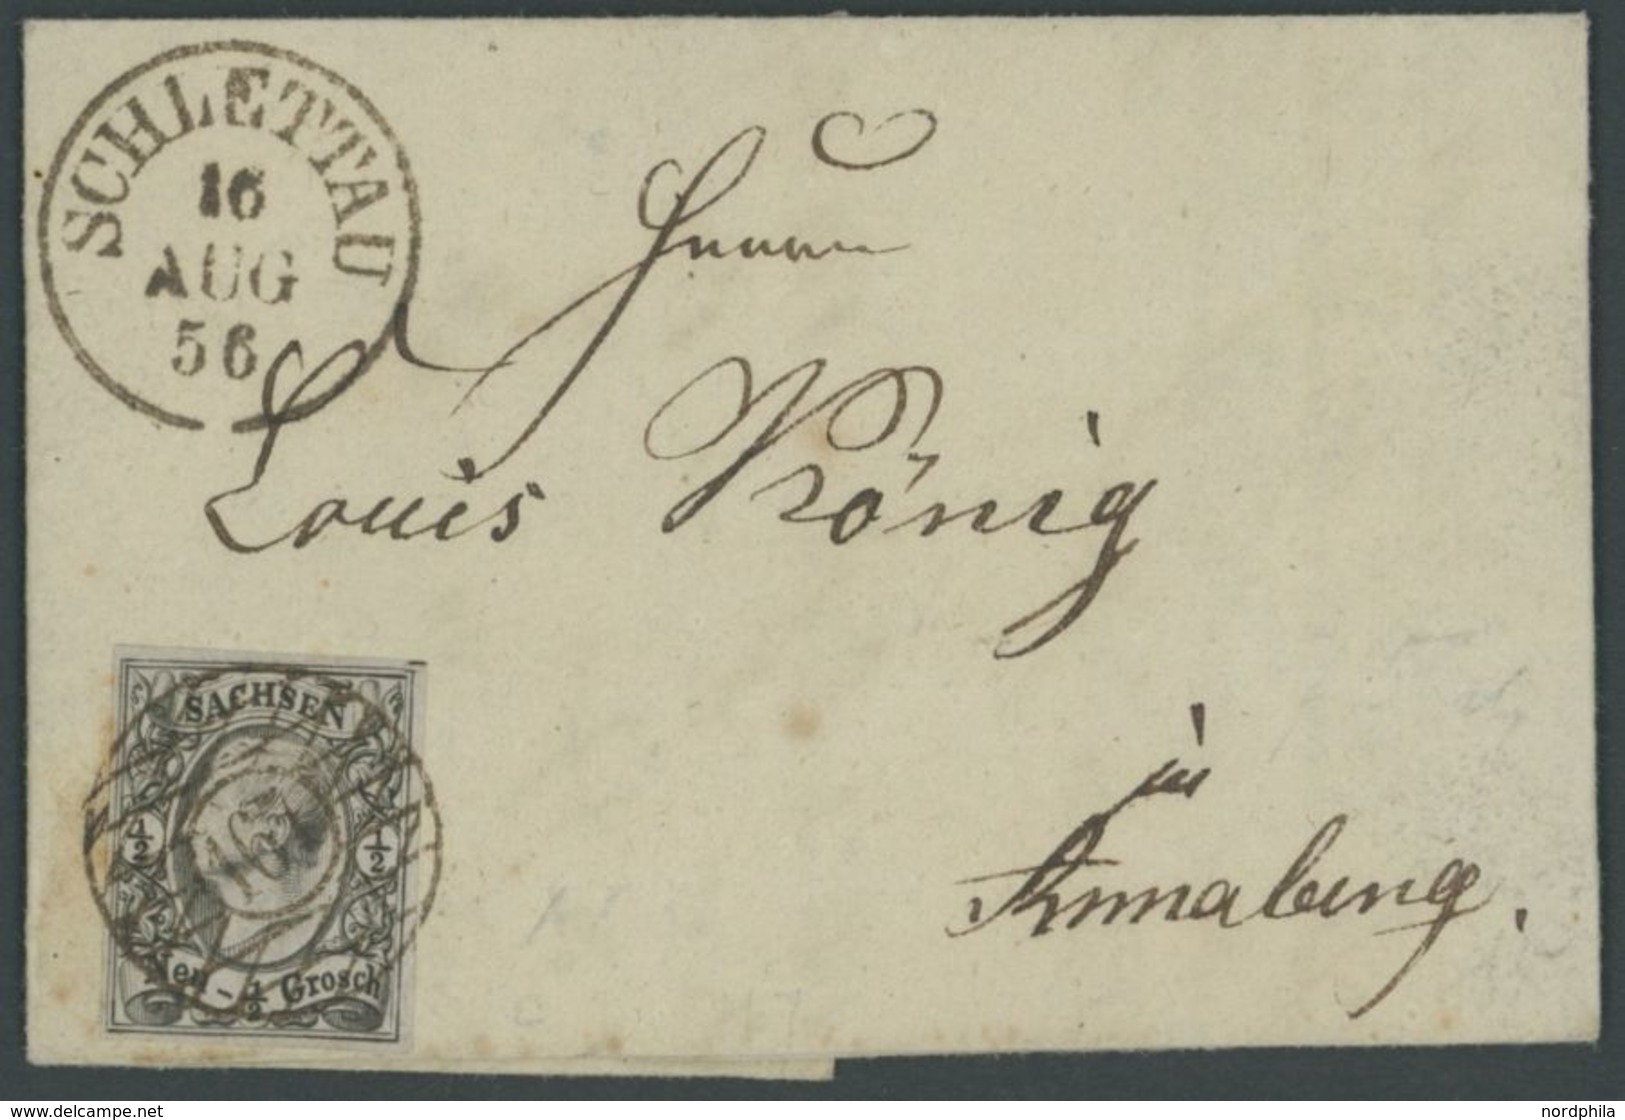 SCHLETTAU
16
AUG
56
Herrn
Louis König
in
Annaberg.
SACHSEN
1/2 1/2
Neu - 1/2 Grosch
www.delcampe.net
nordphila